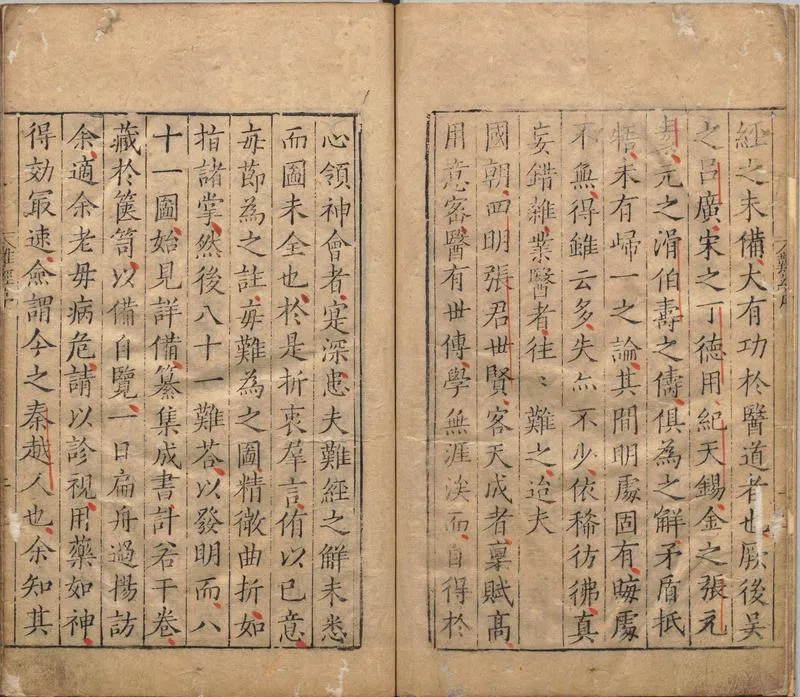 經之未備大有功於醫道者也厥後吳
之呂廣宋之丁德用紀天錫金之張元
素元之滑伯壽之儔俱為之解矛盾抵
牾未有歸一之論其間明處固有晦處
不無得雖云多失亦不少依稀彷彿真
妄錯雜業醫者往〻難之迨夫
國朝四明張君世賢客天成者稟賦高
用意密醫有世傳學無涯涘而自得於
心領神會者寔深患夫難經之解未悉
而圖未全也於是折衷羣言侑以已意
每節為之註每難為之圖精微曲折如
指諸掌然後八十一難荅以發明而八
十一圖始見詳備纂集成書計若干卷
藏於篋笥以備自覽一日扁舟過揚訪
余適余老母病危請以診視用藥如神
得効冣速僉謂今之秦越人也余知其